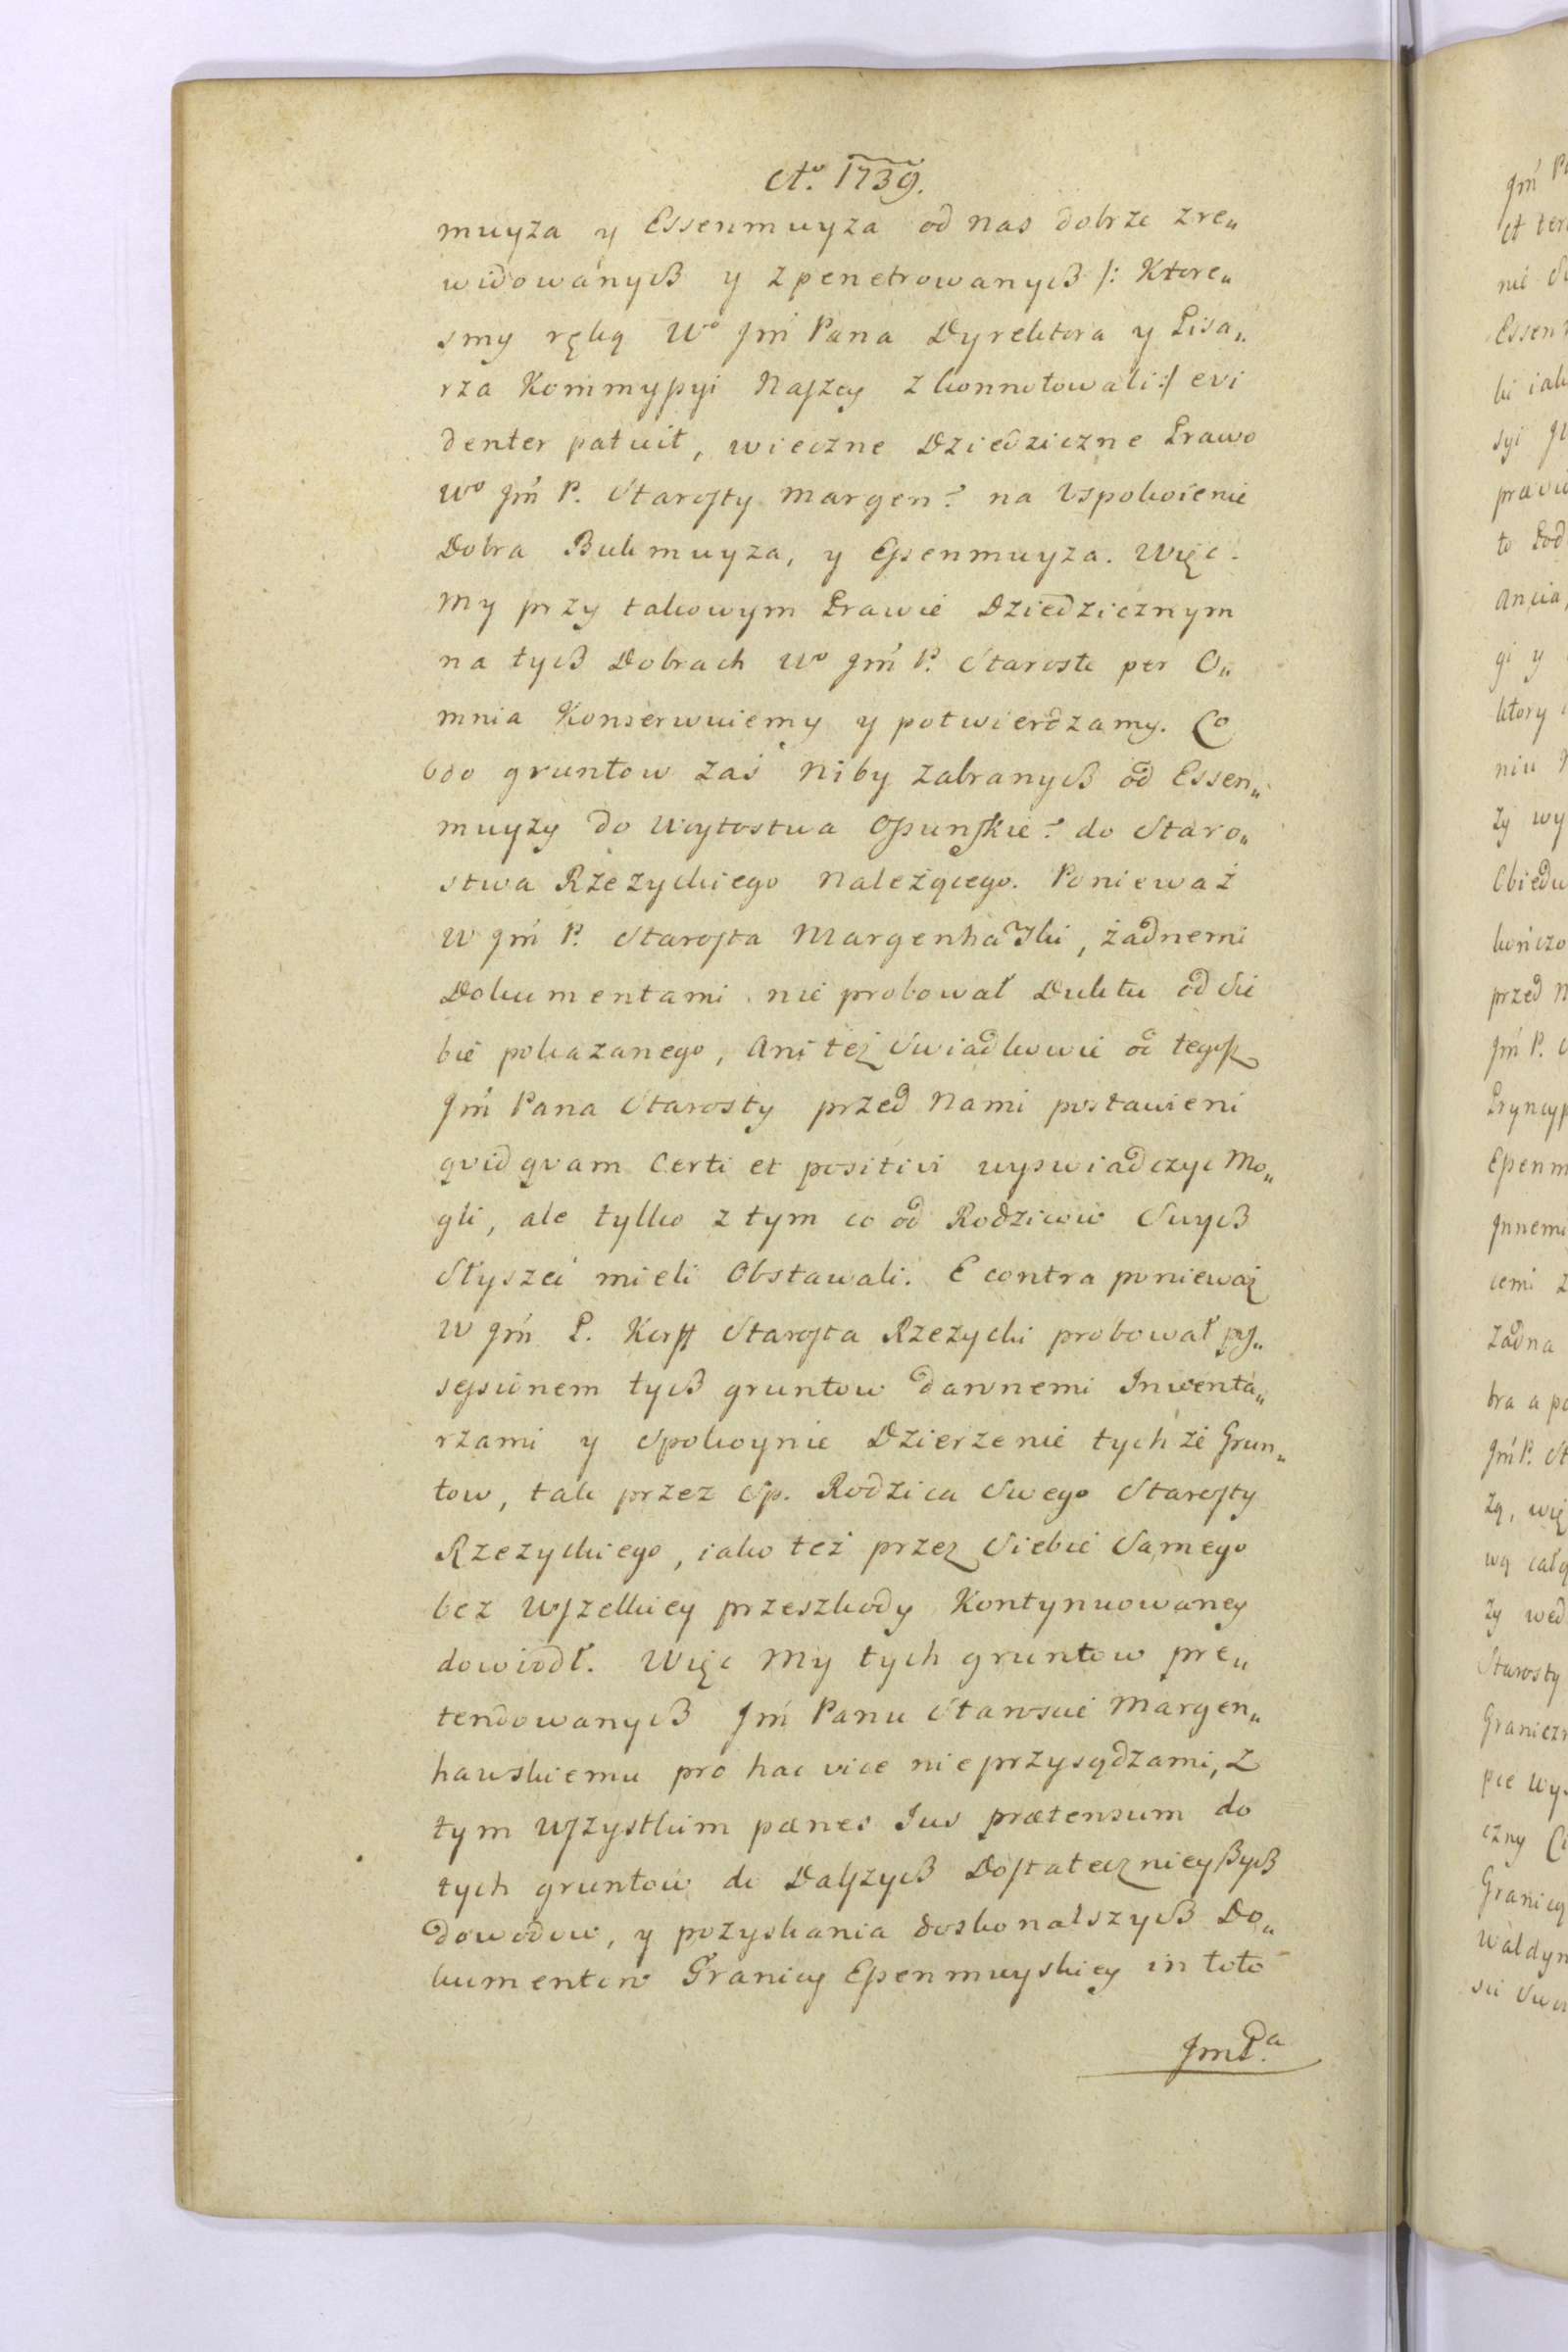 Ao. 1739.
muyza y Essenmuyza od nas dobrze zre„
widowanych y zpenetrowanych /: Ktore„
smy ręką Wo Jm Pana Dyrektora y Pisa„
rza Kommyssyi Naszey zkonnotowali :/ evi
denter patuit, wieczne Dziedziczne Prawo
Wo Jm P. Starosty Margen? na Uspokoienie
Dobra Bukmuyza, y Essenmuyza. Więc
My przy takowym Prawie Dziedzicznym
na tych Dobrach Wo Jm P. Staroste per O„
mnia Konserwuiemy y potwierdzamy. Co
do gruntow zaś niby zabranych od Essen„
muyzy do Woytostwa Ossunskie? do Staro„
stwa Rzezyckiego należącego. Ponieważ
W Jm P. Starosta Margenhaski, żadnemi
Dokumentami nie probował Duktu od Sie
bie pokazanego, Ani też Swiadkowie od tegosz
Jm Pana Starosty przed Nami postawieni
qvidqvam Certi et positivi wyswiadczyc Mo„
gli, ale tylko z tym co od Rodzicow Swych
Słyszeć mieli Obstawali. E contra ponieważ
W Jm P. Korff Starosta Rzezycki probował pos„
sessionem tych gruntow dawnemi Inwenta„
rzami y Spokoynie Dzierzenie tychże Grun„
tow, tak przez Sp. Rodzica Swego Starosty
Rzezyckiego, iako też przez Siebie Samego
bez Wszelkiey przeszkody Kontynuowaney
dowiodł. Więc My tych gruntow pre„
tendowanych Jm Panu Staroscie Margen„
hauskiemu pro hac vice nie przysądzami, z
tym Wszystkim pænes Jus prætensum do
tych gruntow do Dalszych Dostatecznieyszych
dowodow, y pozyskania doskonalszych Do„
kumentow Granicy Essenmuyskiey in toto
JmPa.